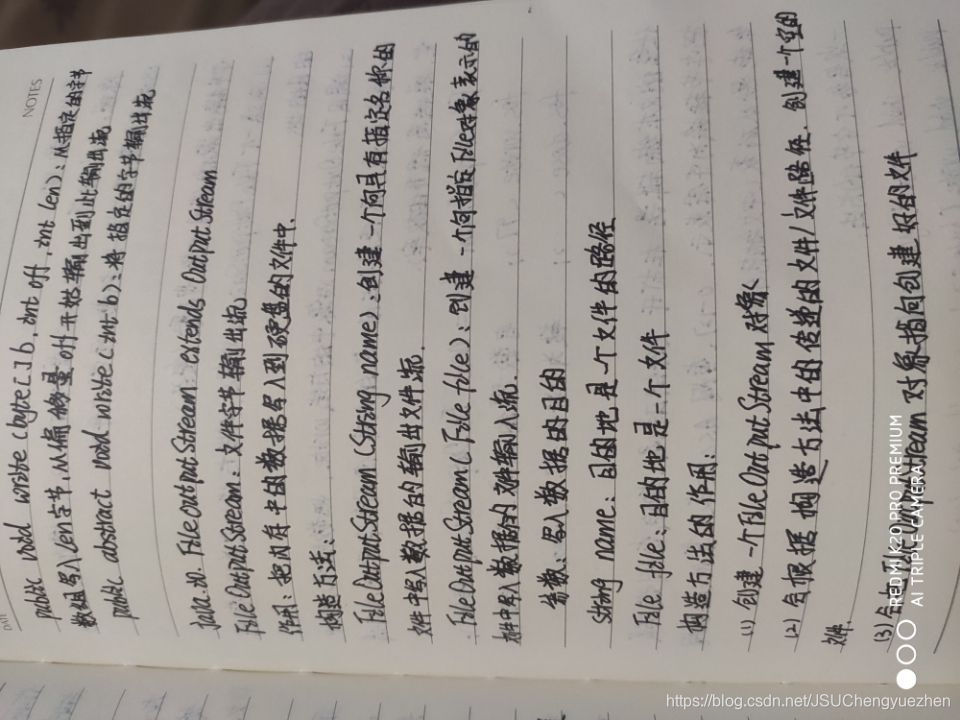 DATE
NOTES
public void write (byte[] b, int off, int len) : 从指定的字节
数组写入len字节,从偏移量off开始输出到此输出流
public abstract void write(int b) : 将指定的字节输出流
java.io.FileOutputStream extends OutputStream
FileOutputStream: 文件字节输出流
作用: 把内存中的数据写入到硬盘的文件中.
构造方法:
FileOutputStream (String name) : 创建一个向具有指定名称的
文件中写入数据的输出文件流.
FileOutputStream (File file) : 创建一个向指定File对象表示的
文件中写入数据的文件输入流.
参数: 写入数据的目的
string name: 目的地是一个文件的路径
File file: 目的地是一个文件
构造方法的作用:
(1) 创建一个FileOutputStream对象
(2) 会根据构造方法中的传递的文件/文件路径, 创建一个空的
文件.
(3) 会把FileOutputStream对象指向创建好的文件
REDMI K20 PRO PREMIUM
AI TRIPLE CAMERA
https://blog.csdn.net/JSUChengyuezhen